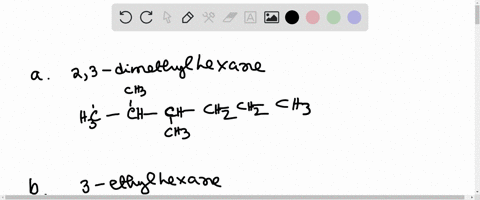 a. 2,3-dimethylhexane
CH3
H3C - CH - CH - CH2 CH2 CH3
CH3
b. 3-ethylhexane